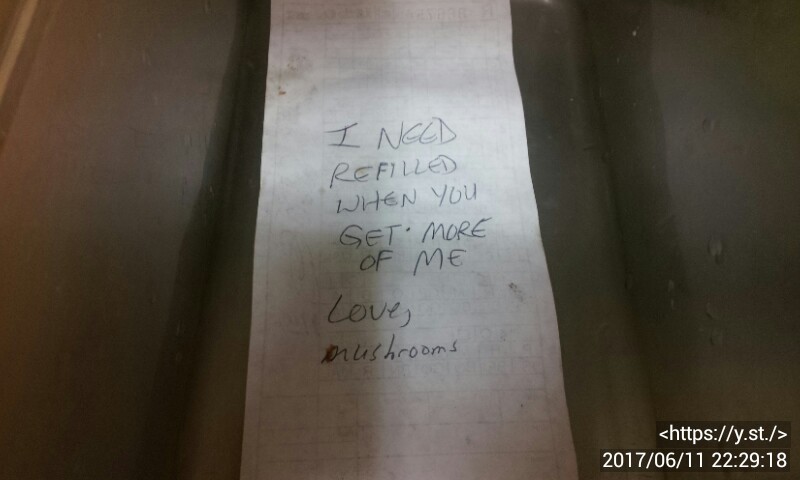 I NEED
REFILLED
WHEN YOU
GET MORE
OF ME
Love,
mushrooms
<https://y.st./>
2017/06/11 22:29:18